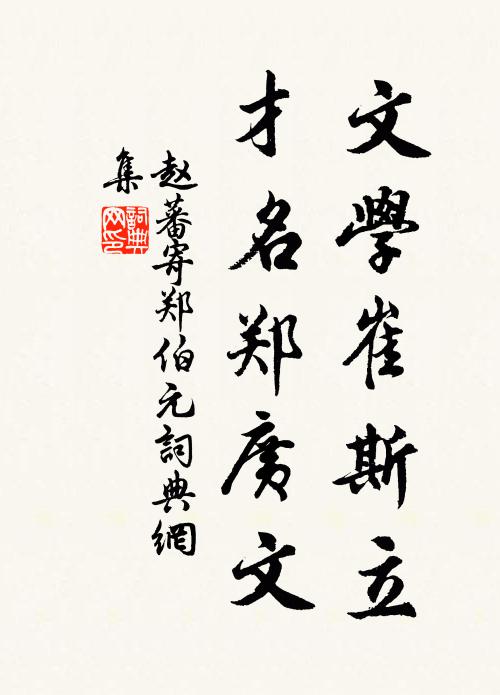 文學崔斯立
才名郑廣文
赵蕃寄郑伯元詞典網
集
詞典网印